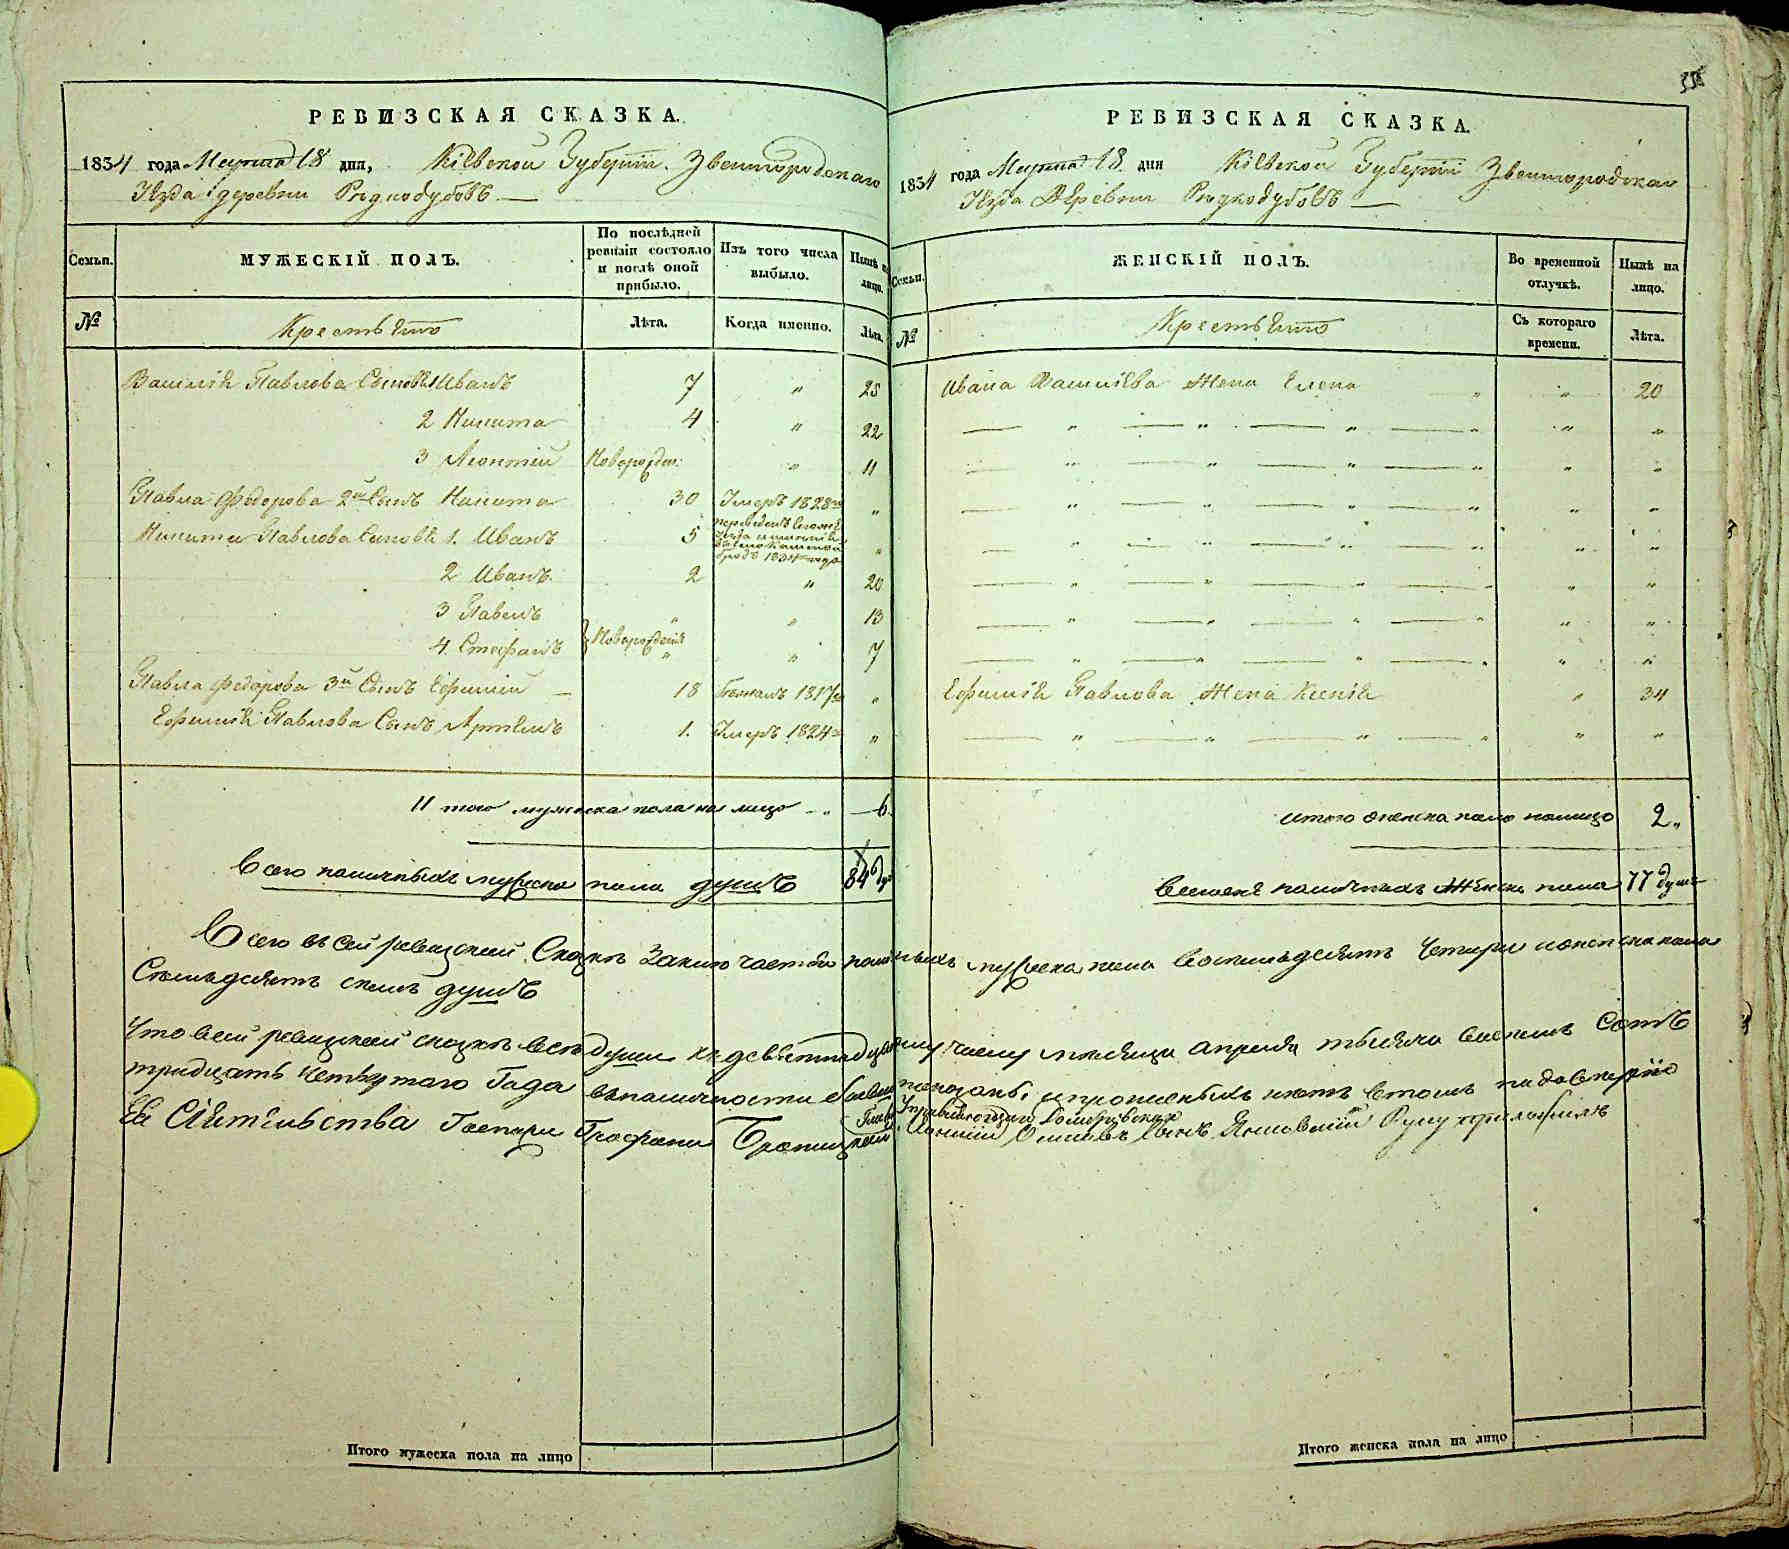 РЕВИЗСКАЯ СКАЗКА.
1834 года Марта 18 дня, Кіевской Губерніи Звенигородскаго
Уѣзда деревни Рыдкодубовъ
Семьи.
МУЖЕСКІЙ ПОЛЪ.
По послѣдней ревизіи состояло и послѣ оной прибыло.
Изъ того числа выбыло.
Нынѣ на лицо.
№
Крестьяно
Лѣта.
Когда именно.
Лѣта.
Василія Павлова Сыновья 1 Иванъ 7 " 25
2 Никита 4 " 22
3 Леонтій Новорожден: " 11
Павла Федорова 2й Сынъ Никита 30 Умеръ 1828го "
Никиты Павлова Сыновья 1. Иванъ 5 переведенъ 1834 года "
2 Иванъ 2 " 20
3 Павелъ " " 13
4. Стефанъ Новорожденіи " 7
Павла Федорова 3й Сынъ Ефимій 18 Бежалъ 1817го "
Ефимія Павлова Сынъ Артемъ 1. Умеръ 1824го "
Итого мужеска пола на лицо " 6.
Всего наличныхъ мужеска пола душъ 84 ду
РЕВИЗСКАЯ СКАЗКА.
1834 года Марта 18. дня Кіевской Губерніи Звенигородскаго
Уѣзда Деревни Рыдкодубовъ
Семьи.
ЖЕНСКІЙ ПОЛЪ.
Во временной отлучкѣ.
Нынѣ на лицо.
№
Крестьяно
Съ котораго времени.
Лѣта.
Ивана Василіева Жена Елена " 20
Ефимія Павлова Жена Ксенія " 34
итого женска пола налицо 2 "
наличныхъ Женска пола 77 душъ
Всего въ сей ревизской Сказкѣ Заключаетъся наличныхъ мужеска пола восемьдесятъ Четыри и женска пола
Семьдесятъ семъ душъ
Что в сей ревизской сказкѣ всѣ души къ девятнадцатому числу месяца апреля тысяча восемъ Сотъ
тридцать четвертого Года въ наличности показаны, и прописныхъ нетъ въ томъ по доверію
Ея Сіятельства Госпожи Графини Браницкой Сынъ Яновскій Руку приложилъ
Итого мужеска пола на лицо
Итого женска пола на лицо